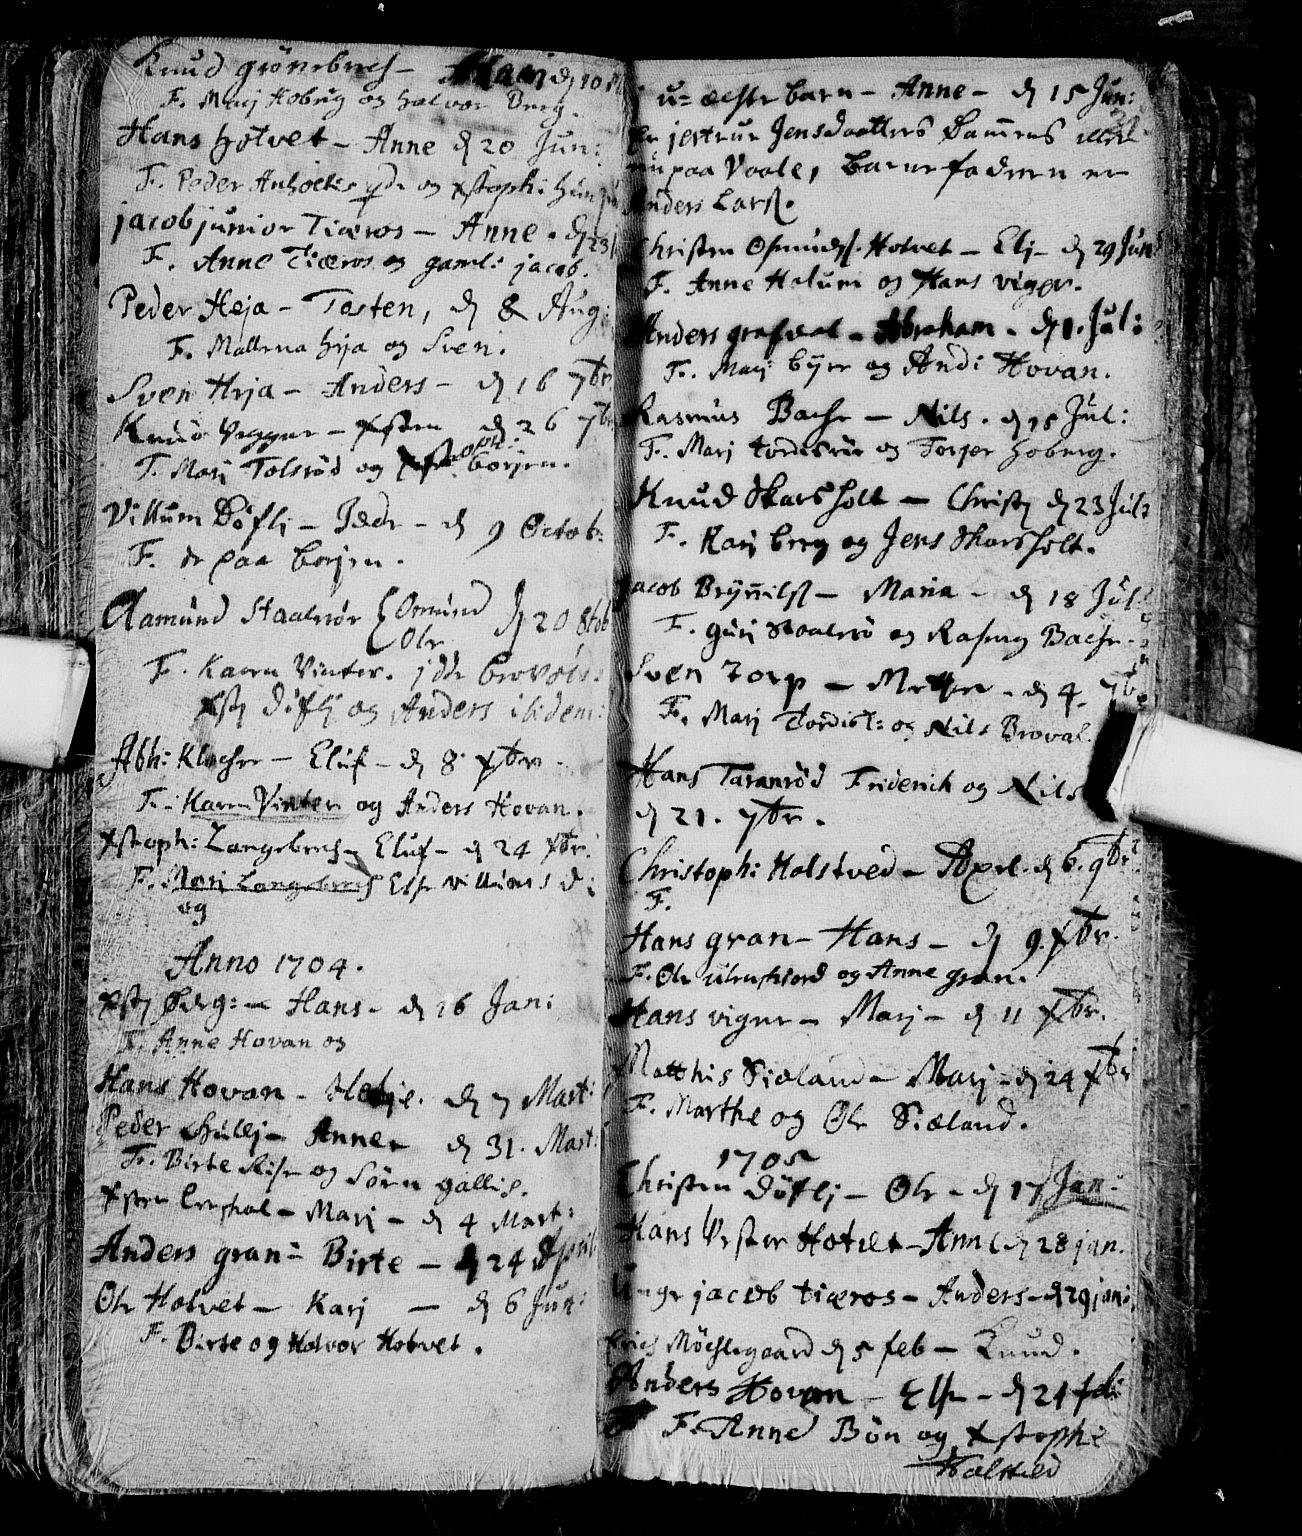 Knud grönebech - Marj d 10
F. Marj Hobrg og Halvor Berg.
Hans Hotvet - Anne d 20 Jun:
F. Peder og xstoph:
jacob junior Tiæros - Anne. d 23
F. Anne Tiæros og gamle jacob.
Peder Heja - Tosten, d 8 Aug:
F. Mallena Heja og Sven.
Sven Heja - Anders - d 16 7br
Knud Veggur - xsten d 26 7br
F. Marj Tolsröd og borjen.
Villum Döflj - Peder - d 9 Octob:
F. de paa borjen.
Aamund Staalerör { Omund d 20 8tob
Ole
F. Karen Vinter.
xsten Döflj og Anders ibidem:
Abh: Klocher - Eluf - d 8 xbr.
F. Karen Vinter og Anders Hovan.
xstoph: Langebrech - Eluf - d 24 xbr.
F. Marj Langebrech Else Villums d:
og
Anno 1704.
xsten Ødeg: - Hans - d 26 Jan:
F. Anne Hovan og
Hans Hovan - Helje. d 7 Mart:
Peder - Anne - d 31. Mart:
F. Birte Riise og Sörn gallis.
xsten - Marj - d 4 Mart:
Anders gran - Birte - d 24 April
Ole Hotvet - Karj - d 6 Jun:
F. Birte og Halvor Hotvet.
u=ægte barn - Anne - d 15 Jun:
jertrue Jensdaatters
nu paa Vaale, barnefaderen er
Anders Lars.
Christen Osmunds. Hotvet - Elj - d 29 Jun
F. Anne Holum og Hans viger.
Anders grefdal - Abraham - d 1. Jul:
F. Marj byre og Andr Hovan.
Rasmus Bache - Nils. d 15 Jul:
F. Marj tordisrör og Torger hoberg.
Knud Skarsholt - Christen d 23 Jul:
F. Karj berg og Jens Skarsholt.
Jacob Bryniils. - Maria - d 18 Jul:
F. gurj Staalerö og Rasmus Bache.
Sven Torp - Mette - d 4. 7br
F. Marj Tordist: og Nils Broval.
Hans Taranröd Friderich og Nils
d 21. 7br.
Christoph: Holstved - Axel. d 6. 9br
F.
Hans gran - Hans - d 9. xbr.
F. Ole ulvefiord og Anne gran.
Hans vigner - Marj - d 11 xbr.
Matthis Siæland - Marj - d 24 xbr
F. Marthe og Ole Siæland.
1705
Christen Döflj - Ole - d 17 Jan:
Hans Vester Hotvet - Anne d 28 jan.
Unge jacob tiæros - Anders - d 29 jan:
Erich Möchlegaard d 5 feb - Knud.
Anders Hovan - Else - d 24 feb:
F. Anne Bön og xstophe
Holsted